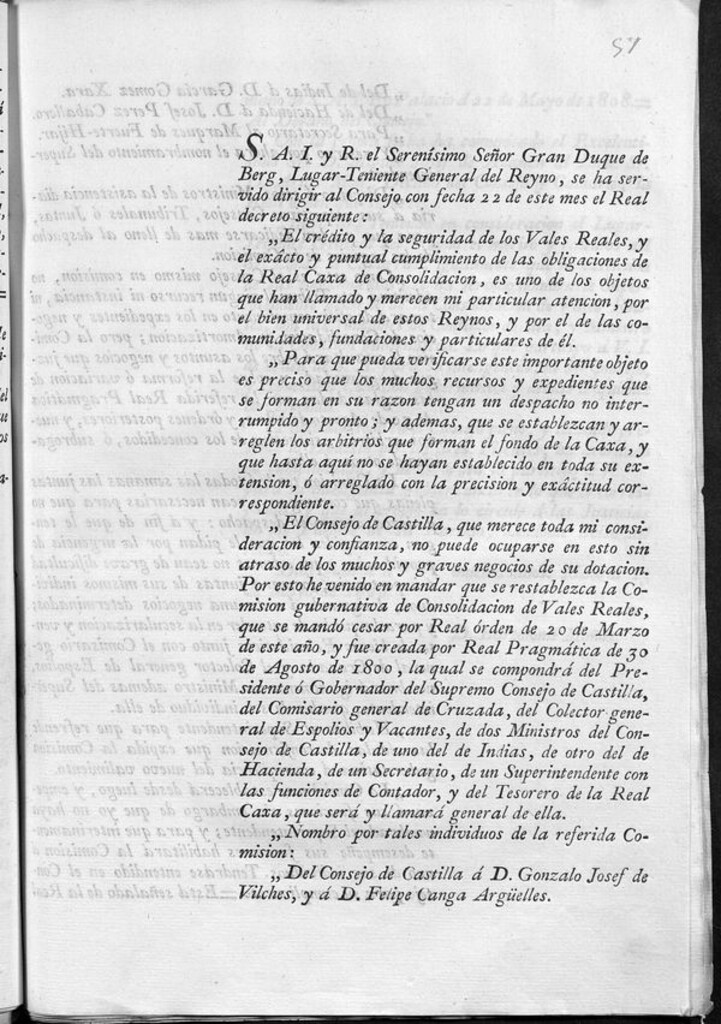 57
S. A. I. y R. el Serenísimo Señor Gran Duque de
Berg, Lugar-Teniente General del Reyno, se ha ser-
vido dirigir al Consejo con fecha 22 de este mes el Real
decreto siguiente:
„El crédito y la seguridad de los Vales Reales, y
el exácto y puntual cumplimiento de las obligaciones de
la Real Caxa de Consolidacion, es uno de los objetos
que han llamado y merecen mi particular atencion, por
el bien universal de estos Reynos, y por el de las co-
munidades, fundaciones y particulares de él.
„Para que pueda verificarse este importante objeto
es preciso que los muchos recursos y expedientes que
se forman en su razon tengan un despacho no inter-
rumpido y pronto; y ademas, que se establezcan y ar-
reglen los arbitrios que forman el fondo de la Caxa, y
que hasta aquí no se hayan establecido en toda su ex-
tension, ó arreglado con la precision y exáctitud cor-
respondiente.
„El Consejo de Castilla, que merece toda mi consi-
deracion y confianza, no puede ocuparse en esto sin
atraso de los muchos y graves negocios de su dotacion.
Por esto he venido en mandar que se restablezca la Co-
mision gubernativa de Consolidacion de Vales Reales,
que se mandó cesar por Real órden de 20 de Marzo
de este año, y fue creada por Real Pragmática de 30
de Agosto de 1800, la qual se compondrá del Pre-
sidente ó Gobernador del Supremo Consejo de Castilla,
del Comisario general de Cruzada, del Colector gene-
ral de Espolios y Vacantes, de dos Ministros del Con-
sejo de Castilla, de uno del de Indias, de otro del de
Hacienda, de un Secretario, de un Superintendente con
las funciones de Contador, y del Tesorero de la Real
Caxa, que será y llamará general de ella.
„Nombro por tales individuos de la referida Co-
mision:
„Del Consejo de Castilla á D. Gonzalo Josef de
Vilches, y á D. Felipe Canga Argüelles.